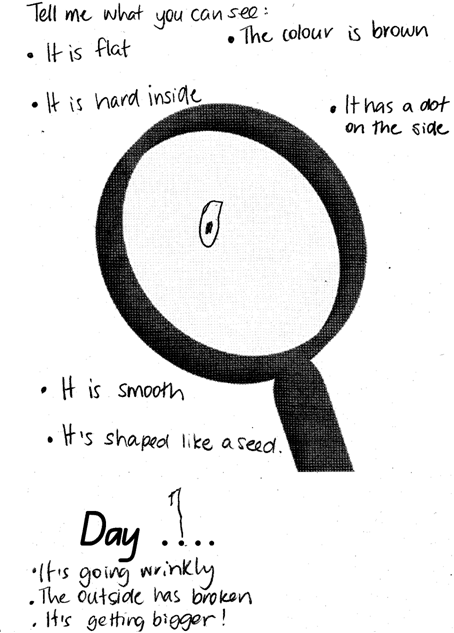 Tell me what you can see:
• It is flat
• The colour is brown
• It is hard inside
• It has a dot
on the side
• It is smooth
• It's shaped like a seed.
Day 1....
• It's going wrinkly
• The outside has broken
• It's getting bigger!